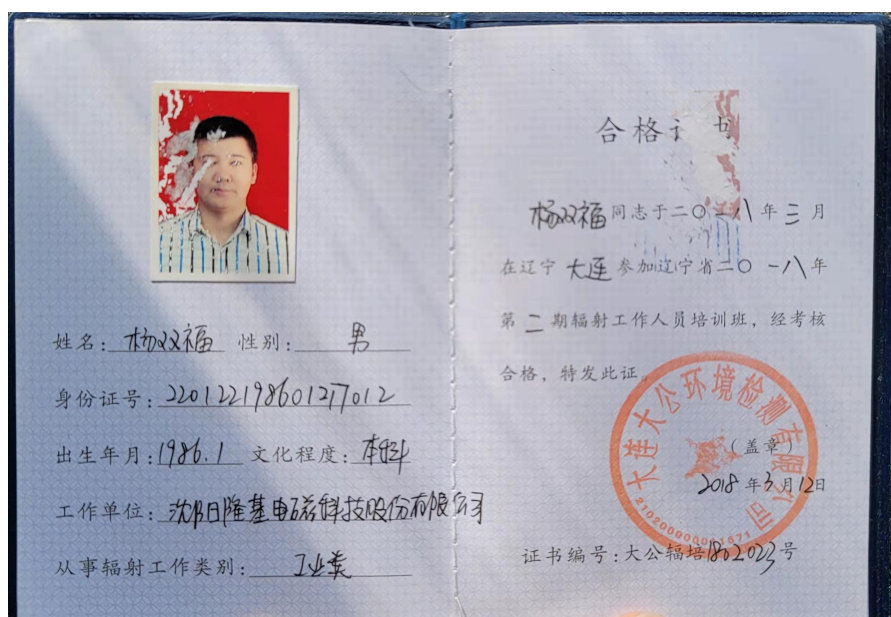 姓名：杨双福 性别：男
身份证号：220122198601217012
出生年月：1986.1 文化程度：本科
工作单位：沈阳隆基电磁科技股份有限公司
从事辐射工作类别：工业类
合格证书
杨双福同志于二〇一八年三月
在辽宁大连参加辽宁省二〇一八年
第二期辐射工作人员培训班，经考核
合格，特发此证。
大连大公环境检测有限公司
（盖章）
2018年3月12日
证书编号：大公辐培1802023号